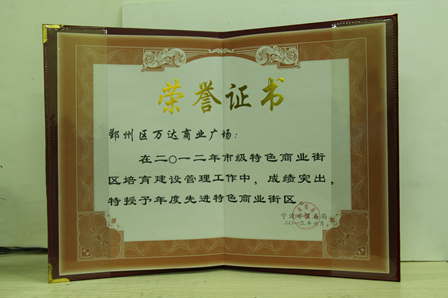 荣誉证书
鄞州区万达商业广场：
在二〇一二年市级特色商业街
区培育建设管理工作中，成绩突出，
特授予年度先进特色商业街区
宁波
局